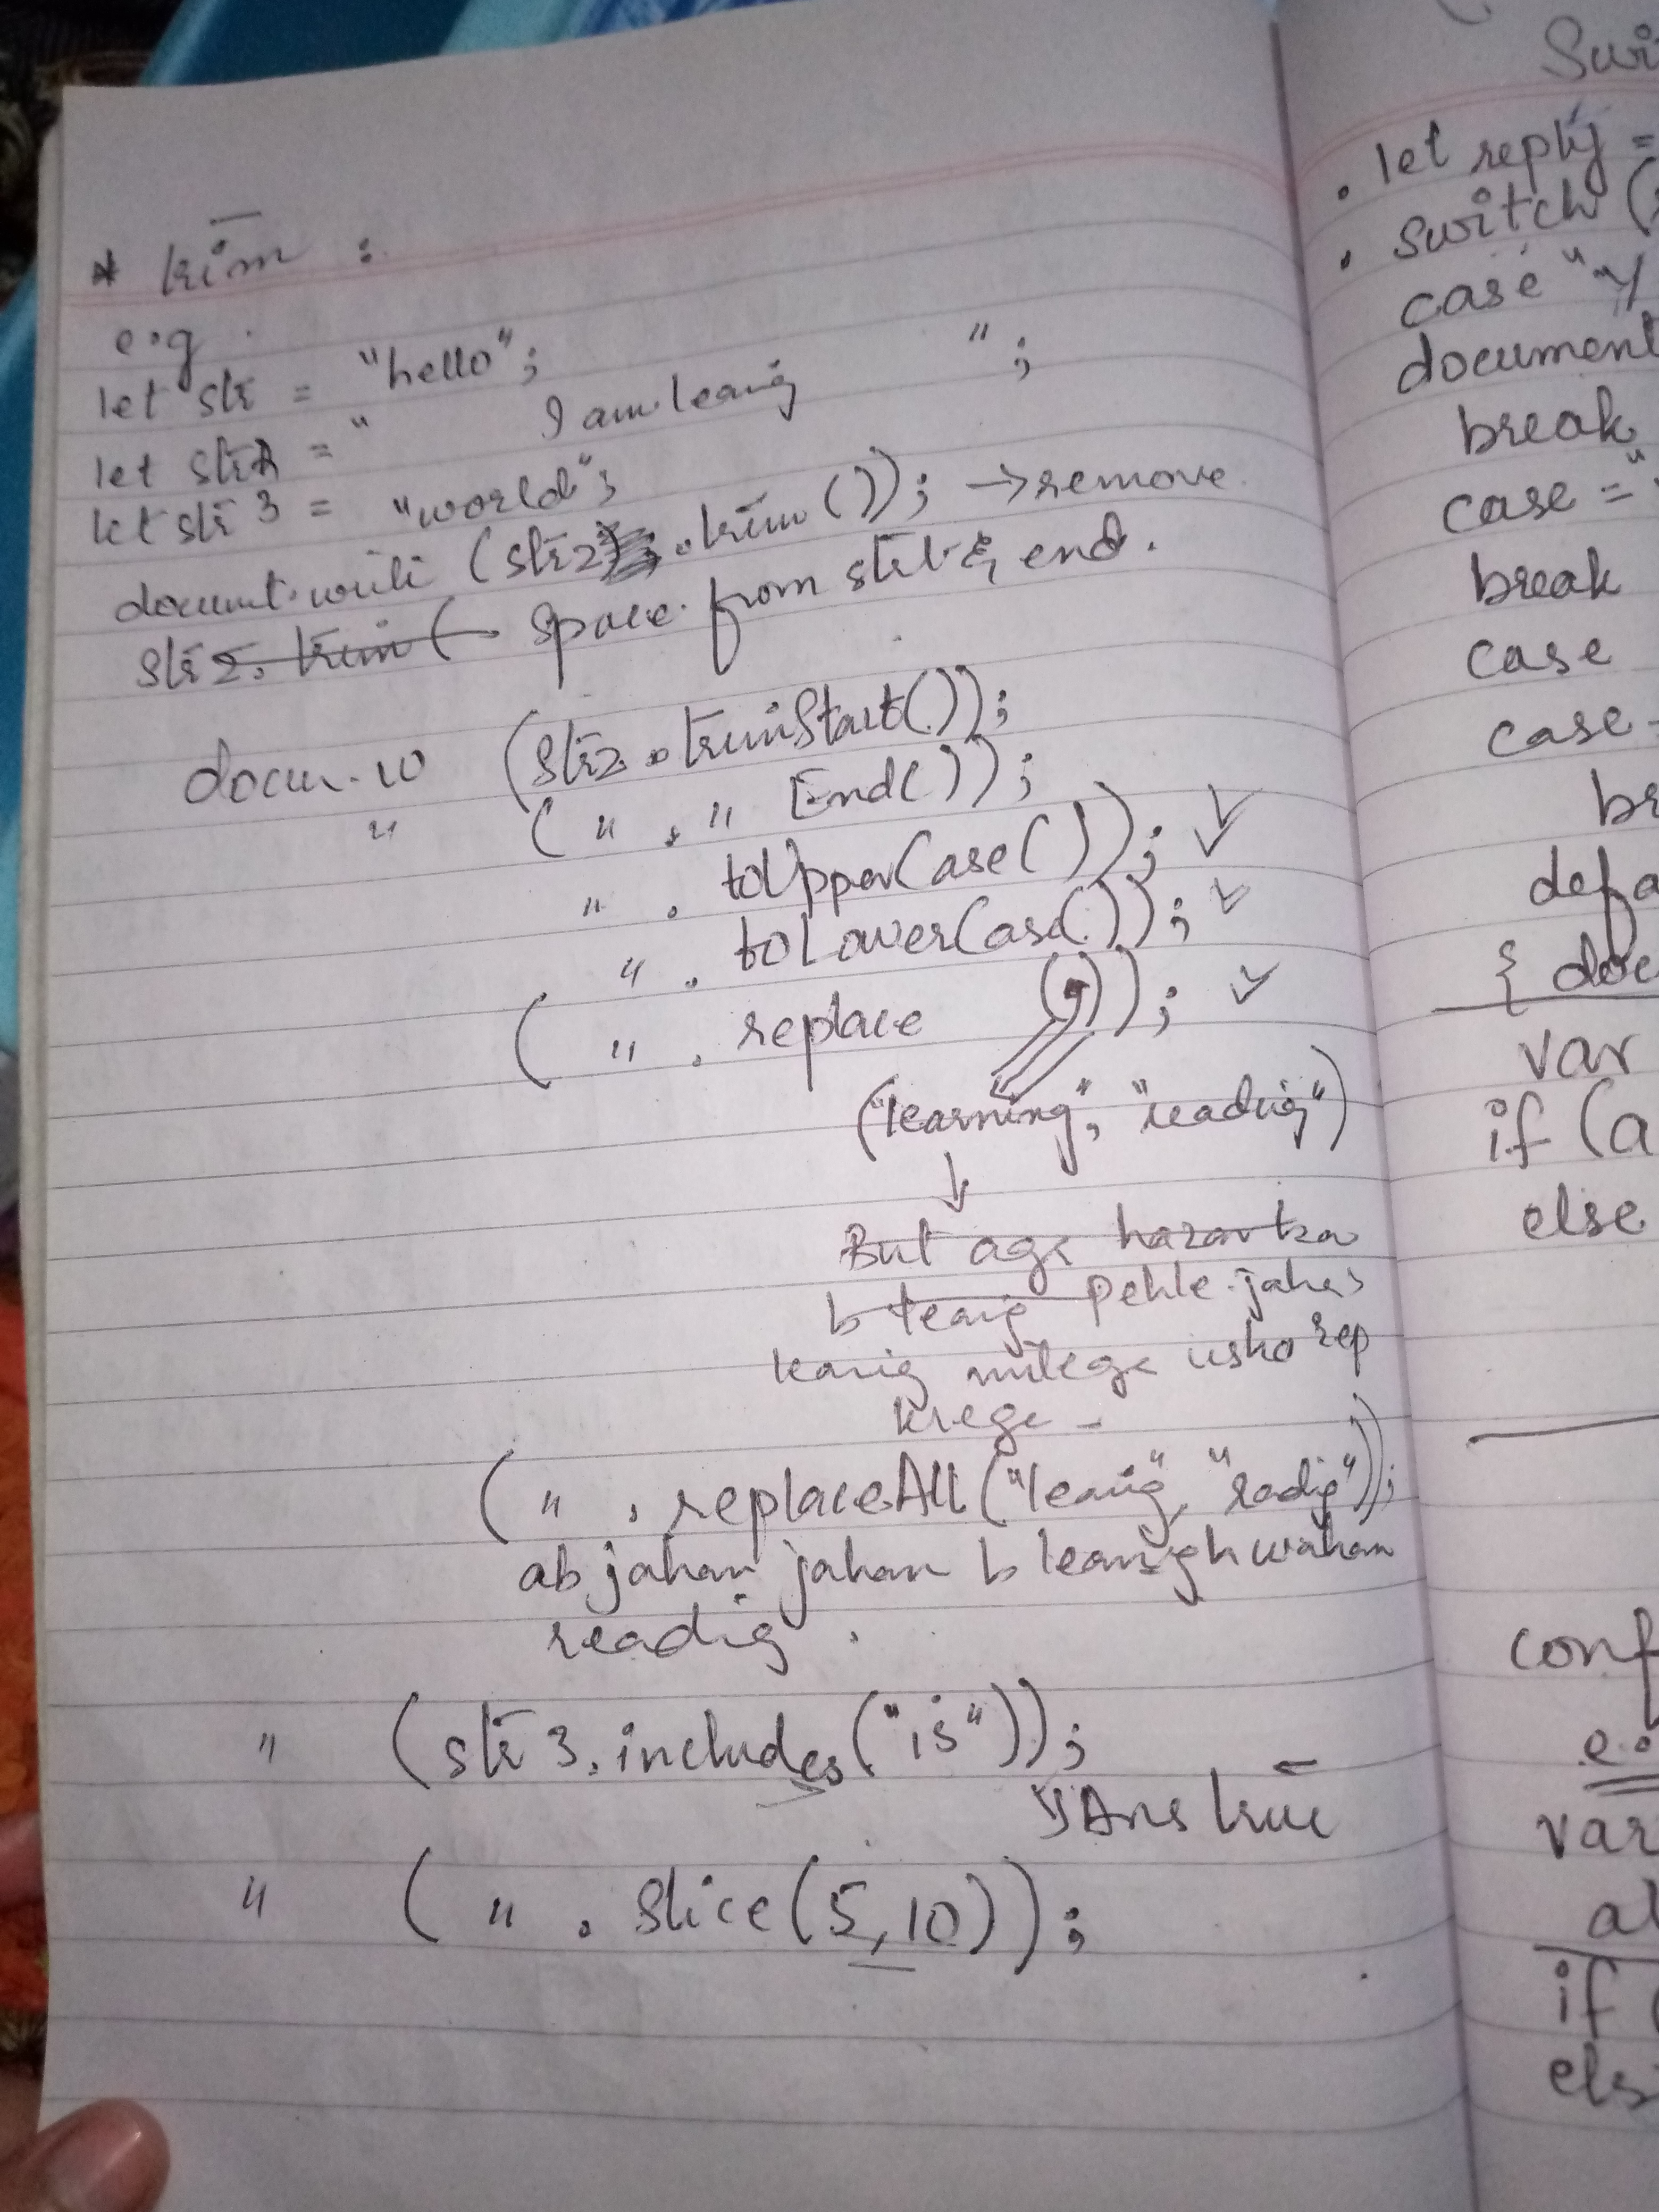 * trim :
e.g.
let str = "hello";
let str2 = " I am learnig ";
let str 3 = "world";
document.write (str2.trim ()); → remove
str2. trim ( space from strt & end.
docum.w (str2.trimStart());
" ( " . " End());
" . toUpperCase()); ✓
" . toLowerCase()); ✓
( " . replace ()); ✓
("learning", "readig")
↓
But aga hazar
b learig pehle jahas
learig milega usko rep
krega -
( " . replaceAll ("learig", "radig"));
ab jahan jahan b learigh wahan
readig .
" (str 3.includes("is"));
Ans true
" ( " . slice(5,10));
Swi
. let reply =
. switch (
case "y
document
break
case = "
break
case
case
br
defa
{ doc
var
if (a
else
conf
e.
var
al
if (
els